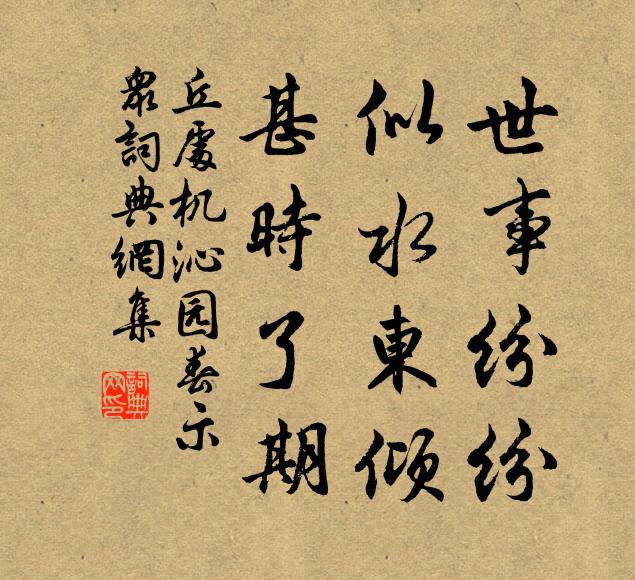 世事紛紛
似水東傾
甚時了期
丘處机沁园春示
眾詞典網集
詞典
网印